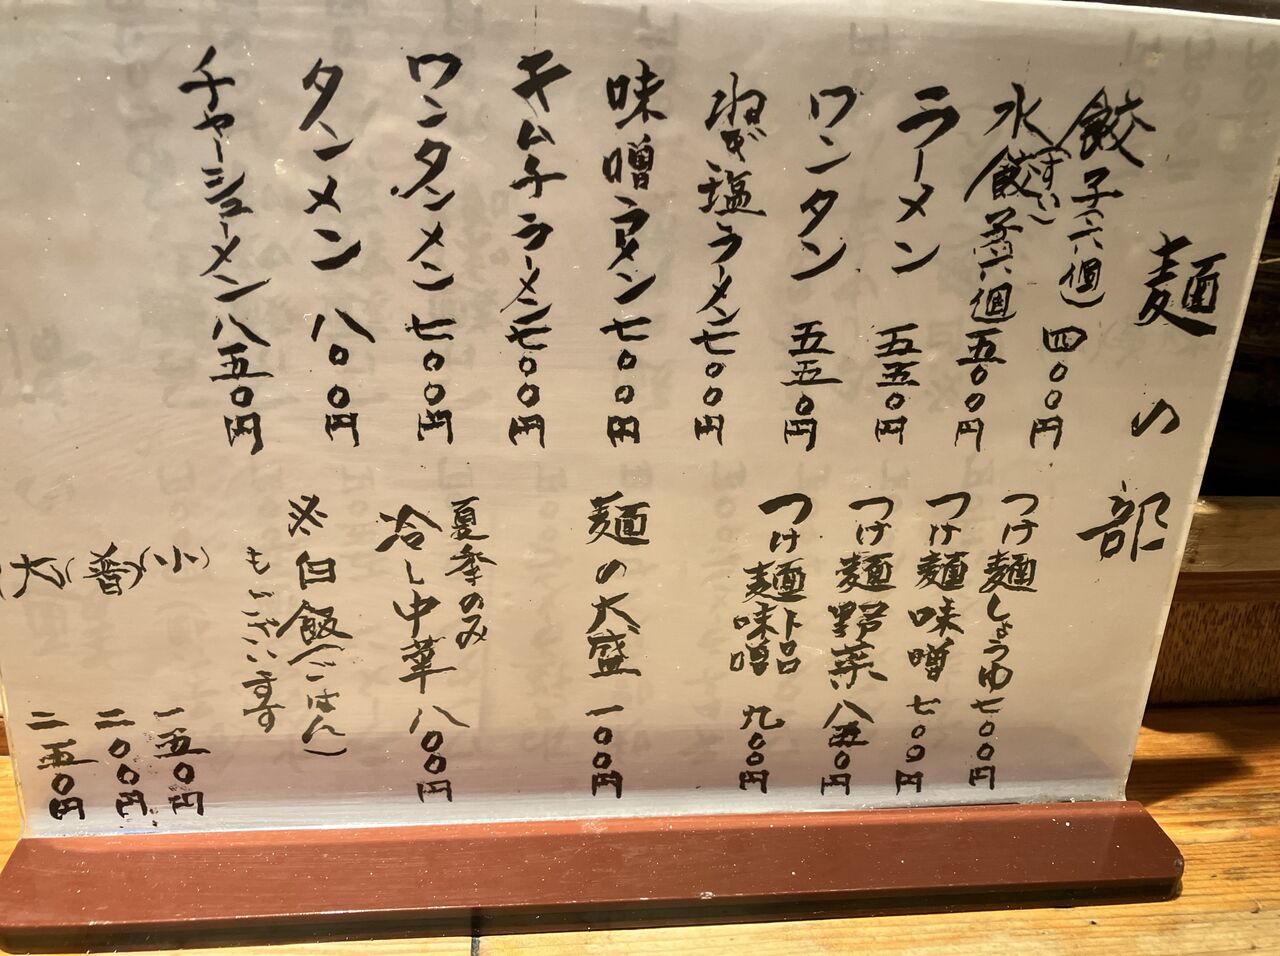 麺の部
餃子(六個) 四〇〇円
水餃子六個 五〇〇円
(すい)
ラーメン 五五〇円
ワンタン 五五〇円
ねぎ塩ラーメン 七〇〇円
味噌ラーメン 七〇〇円
キムチラーメン 七〇〇円
ワンタンメン 七〇〇円
タンメン 八〇〇円
チャーシューメン 八五〇円
つけ麺しょうゆ 七〇〇円
つけ麺味噌 七〇〇円
つけ麺野菜 八五〇円
つけ麺味噌 九〇〇円
麺の大盛 一〇〇円
夏季のみ
冷し中華 八〇〇円
※白飯(ごはん)
もございます
(小) 一五〇円
(普) 二〇〇円
(大 二五〇円